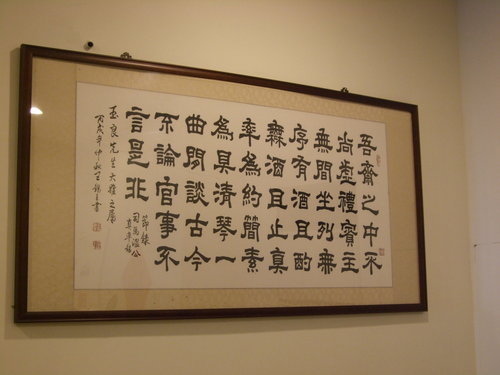 吾齋之中不
尚虛禮賓主
無間坐列無
序有酒且酌
無酒且止真
率為約簡素
為具清琴一
曲閒談古今
不論官事不
言是非
節錄
司馬溫公
真率銘
良先生大雅之屬
丙戌年仲秋王書